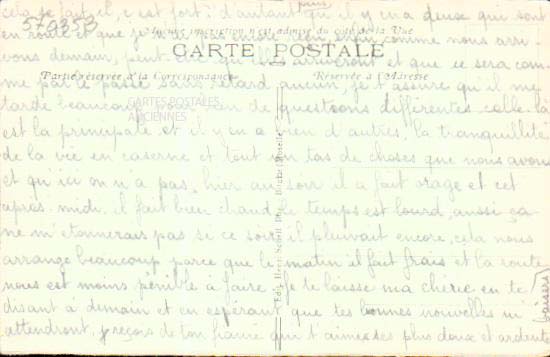 cela se fait, il, c'est fort? d'autant plus qu'il y en a deux qui sont
37033B
en route et que je enfin comme nous arri-
Aucune inscription n'est admise du côté de la Vue
vons demain, peut-être qu'ils arriveront et que ce sera com-
CARTE POSTALE
Partie réservée à la Correspondance
Réservée à l'Adresse
me par le passé sans retard aucun, je t'assure qu'il me
tarde beaucoup de questions différentes celle-là
CARTES POSTALES
ANCIENNES
est la principale et il y en a bien d'autres, la tranquillité
de la vie en caserne et tout un tas de choses que nous avons
et qu'ici on n'a pas, hier au soir il a fait orage et cet
après-midi il fait bien chaud le temps est lourd, aussi ça
ne m'étonnerais pas si ce soir il pleuvait encore, cela nous
arrange beaucoup parce que le matin il fait frais et la route
nous est moins pénible à faire. Je te laisse ma chérie en te
disant à demain et en espérant que tes bonnes nouvelles m'
attendront. reçois de ton fiancé qui t'aime ses plus doux et ardents
baisers